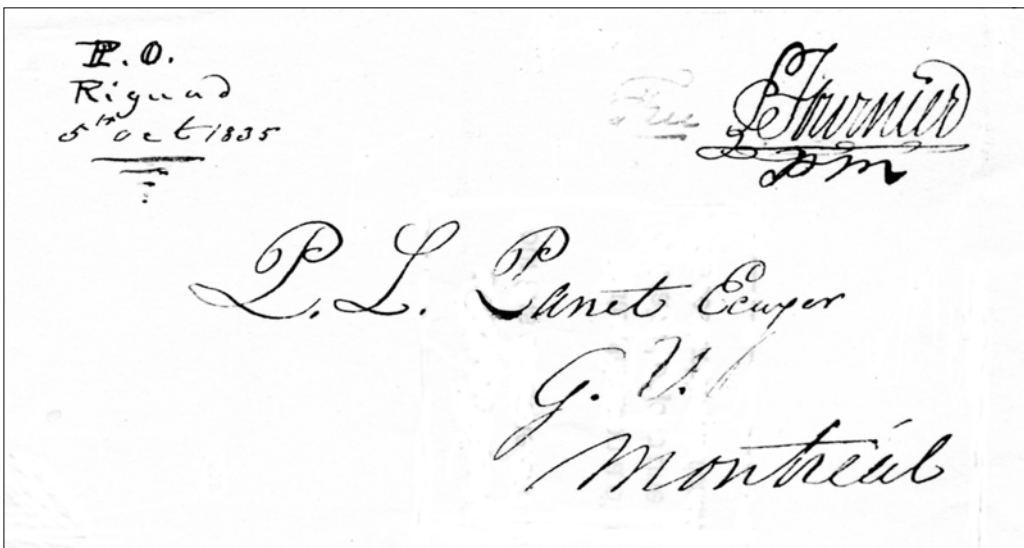 P.O.
Rigaud
5th Oct 1835
Free
Fournier
pm
P. L. Panet Ecuyer
G. V.
Montréal